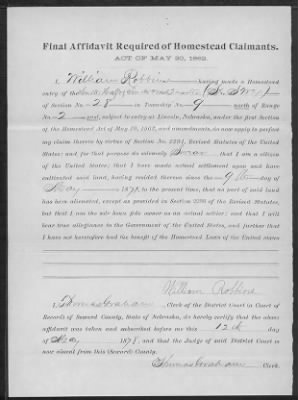 Final Affidavit Required of Homestead Claimants.
ACT OF MAY 20, 1862.
I, William Robbins having made a Homestead
entry of the South Half South West Quarter (S½ SW¼)
of Section No. 28 in Township No. 9 north of Range
No. 2 east, subject to entry at Lincoln, Nebraska, under the first Section
of the Homestead Act of May 20, 1862, and amendments, do now apply to perfect
my claim thereto by virtue of Section No. 2291, Revised Statutes of the United
States: and for that purpose do solemnly Swear that I am a citizen
of the United States; that I have made actual settlement upon and have
cultivated said land, having resided thereon since the 9th day of
May 1873, to the present time, that no part of said land
has been alienated, except as provided in Section 2288 of the Revised Statutes,
but that I am the sole bona fide owner as an actual settler; and that I will
bear true allegiance to the Government of the United States, and further that
I have not heretofore had the benefit of the Homestead Laws of the United states
William Robbins
I, Thomas Graham Clerk of the District Court in Court of
Record of Seward County, State of Nebraska, do hereby certify that the above
affidavit was taken and subscribed before me this 12th day
of May 1878, and that the Judge of said District Court is
now absent from this (Seward) County.
Thomas Graham Clerk.